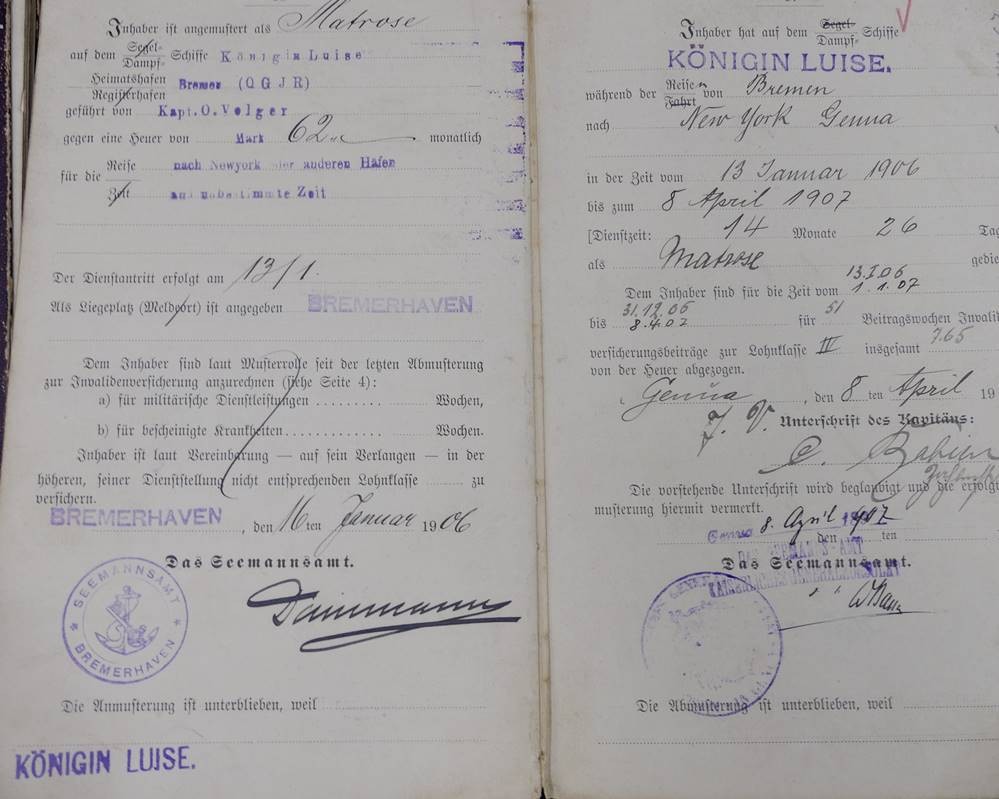 Inhaber ist angemustert als Matrose
auf dem Segel- Dampf- Schiffe Königin Luise
Heimatshafen Registerhafen Bremen (QGJR)
geführt von Kapt. O. Volger
gegen eine Heuer von Mark 62 monatlich
für die Reise nach Newyork oder anderen Häfen
Zeit auf unbestimmte Zeit
Der Dienstantritt erfolgt am 13/1.
Als Liegeplatz (Meldeort) ist angegeben BREMERHAVEN
Dem Inhaber sind laut Musterrolle seit der letzten Abmusterung
zur Invalidenversicherung anzurechnen (siehe Seite 4):
a) für militärische Dienstleistungen ......... Wochen,
b) für bescheinigte Krankheiten ............ Wochen.
Inhaber ist laut Vereinbarung — auf sein Verlangen — in der
höheren, seiner Dienststellung nicht entsprechenden Lohnklasse zu
versichern.
BREMERHAVEN, den 16 ten Januar 1906
Das Seemannsamt.
SEEMANNSAMT
BREMERHAVEN
Die Anmusterung ist unterblieben, weil
KÖNIGIN LUISE.
Inhaber hat auf dem Segel- Dampf- Schiffe
KÖNIGIN LUISE.
während der Reisen Fahrt von Bremen
nach New York Genua
in der Zeit vom 13 Januar 1906
bis zum 8 April 1907
[Dienstzeit: 14 Monate 26 Tag
als Matrose gedie
Dem Inhaber sind für die Zeit vom 13.I.06 1.1.07
bis 31.12.06 8.4.07 für 51 Beitragswochen Invali
versicherungsbeiträge zur Lohnklasse IV insgesamt 7.65
von der Heuer abgezogen.
Genua, den 8 ten April 19
J. V. Unterschrift des Kapitäns:
C.
Die vorstehende Unterschrift wird beglaubigt und die erfolgt
musterung hiermit vermerkt.
Genua 8. April 1907
den ten
Das Seemannsamt.
DAS SEEMANNS-AMT
KAISERLICHES GENERALKONSULAT
Die Abmusterung ist unterblieben, weil